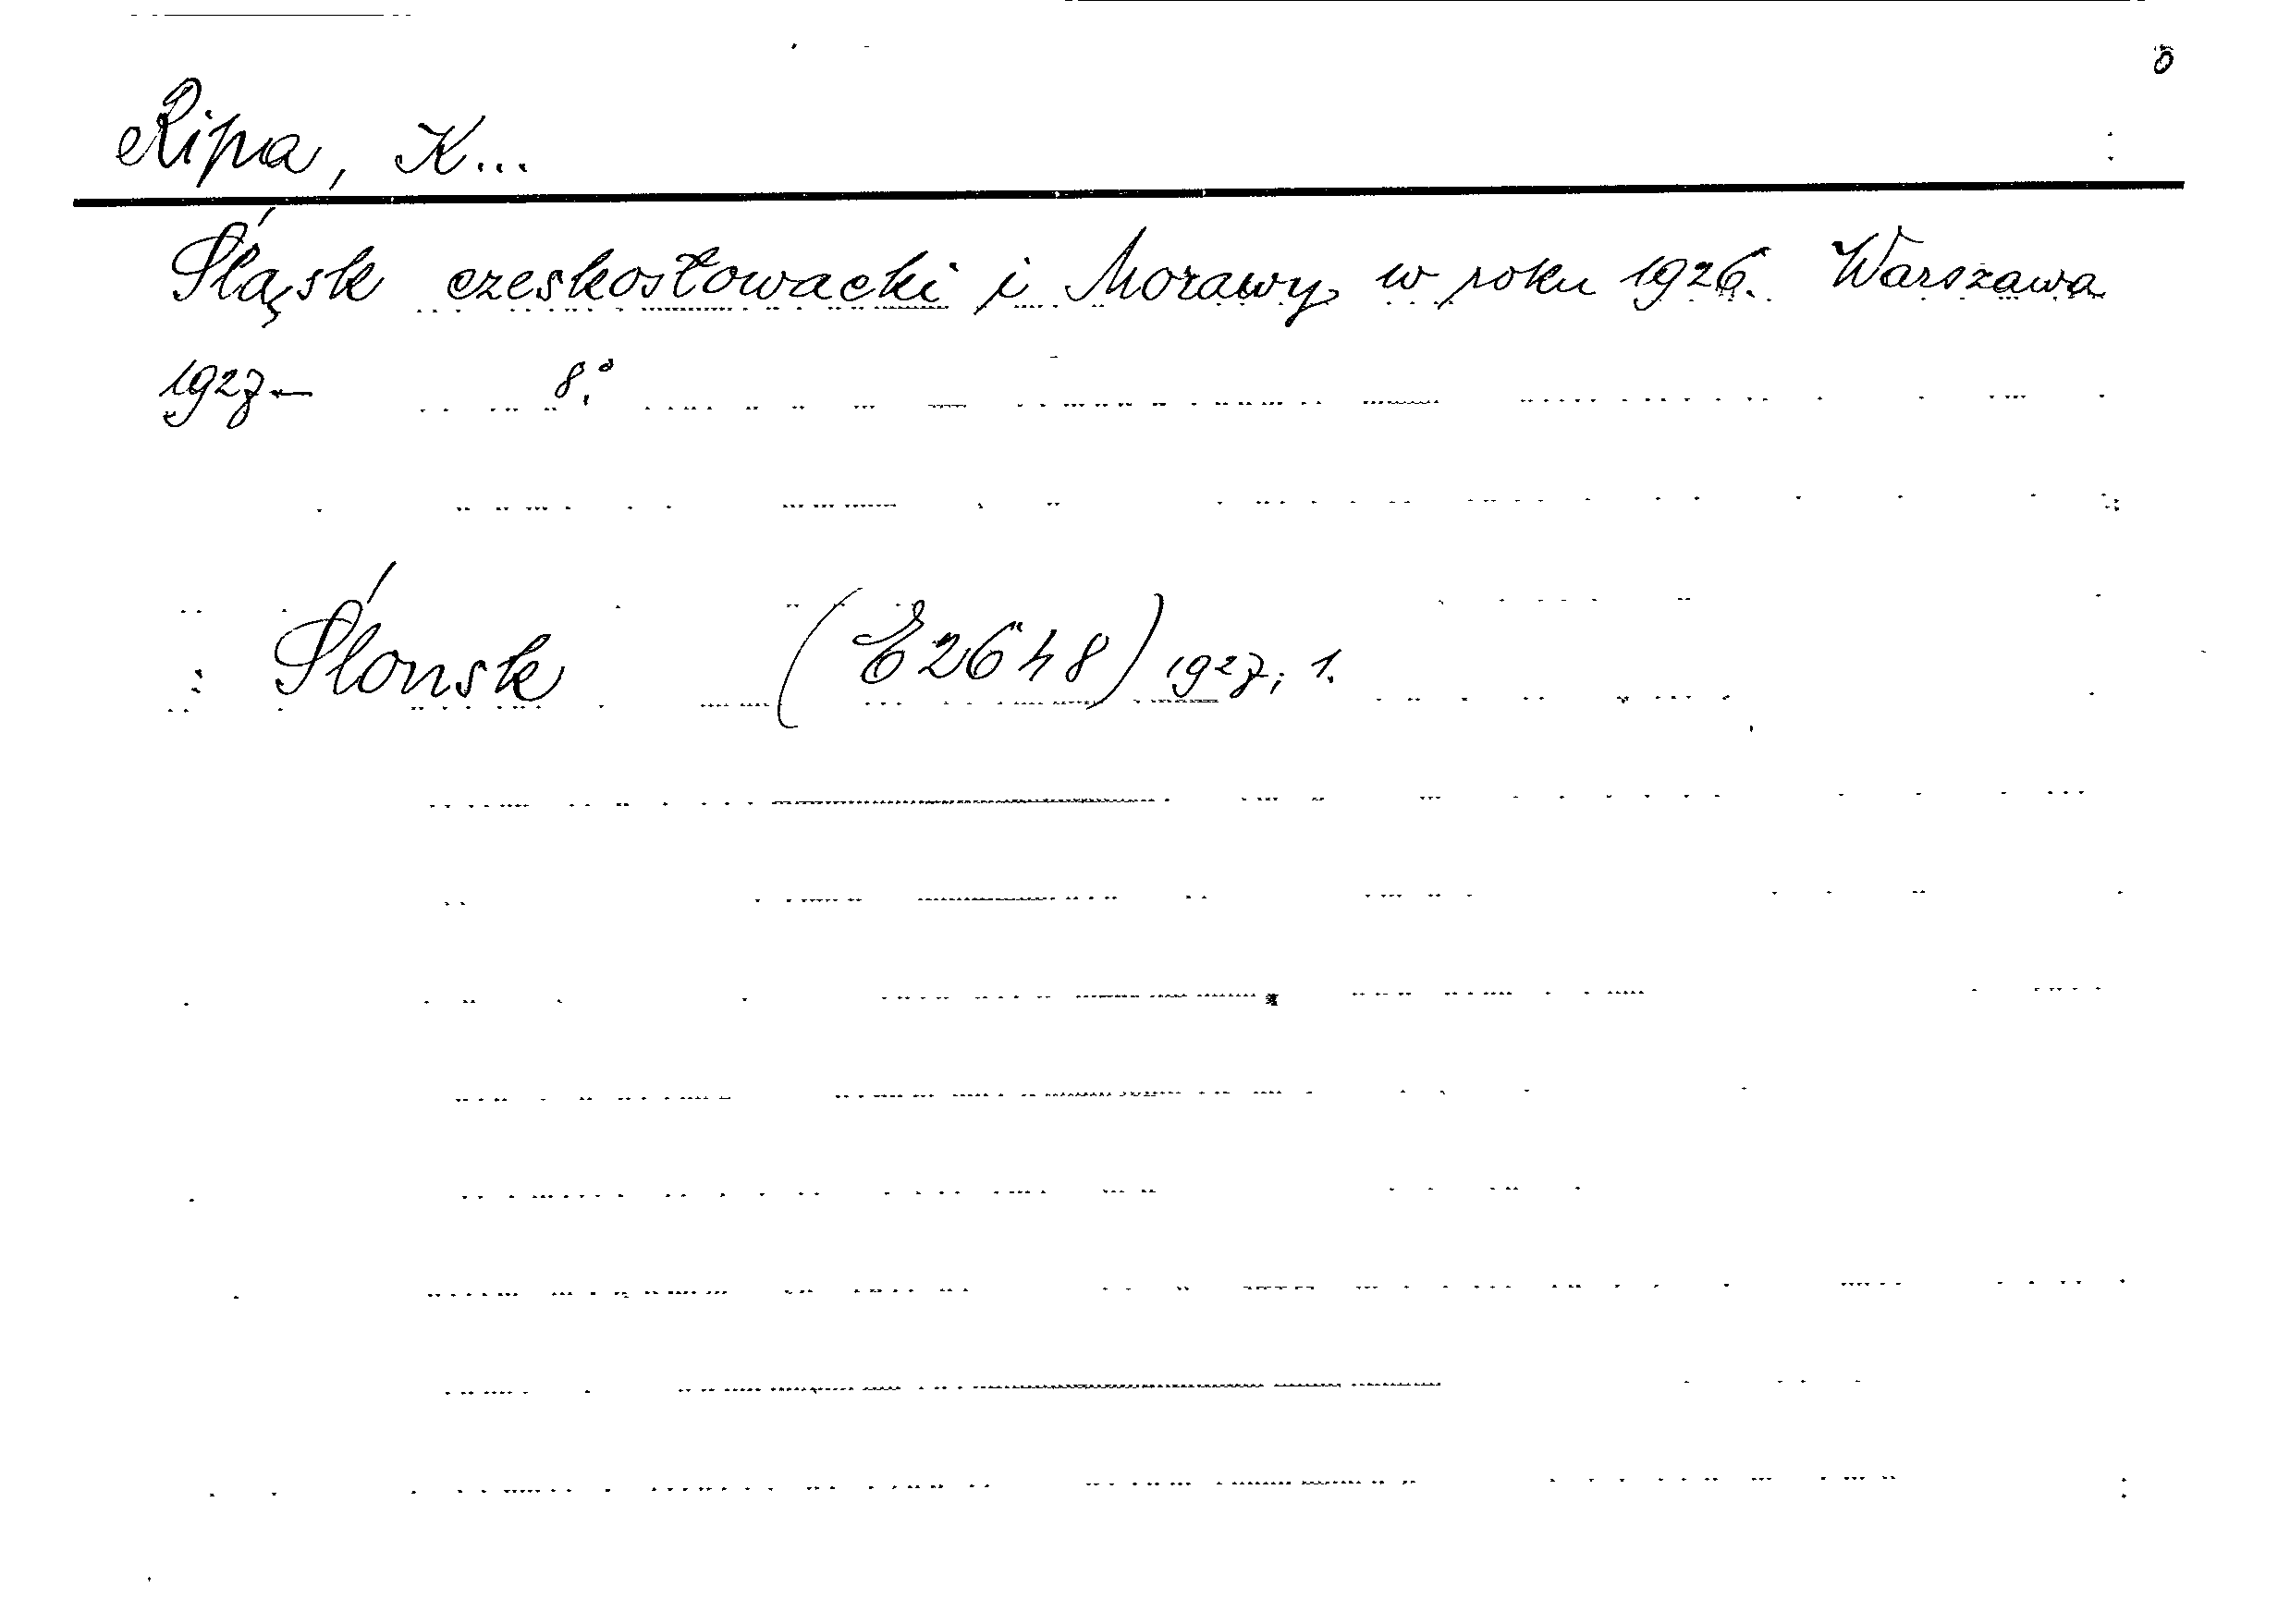 Ripa, K...
Śląsk czeskosłowacki i Morawy w roku 1926. Warszawa
1927— 8.°
Ślonsk (E2648) 1927; 1.